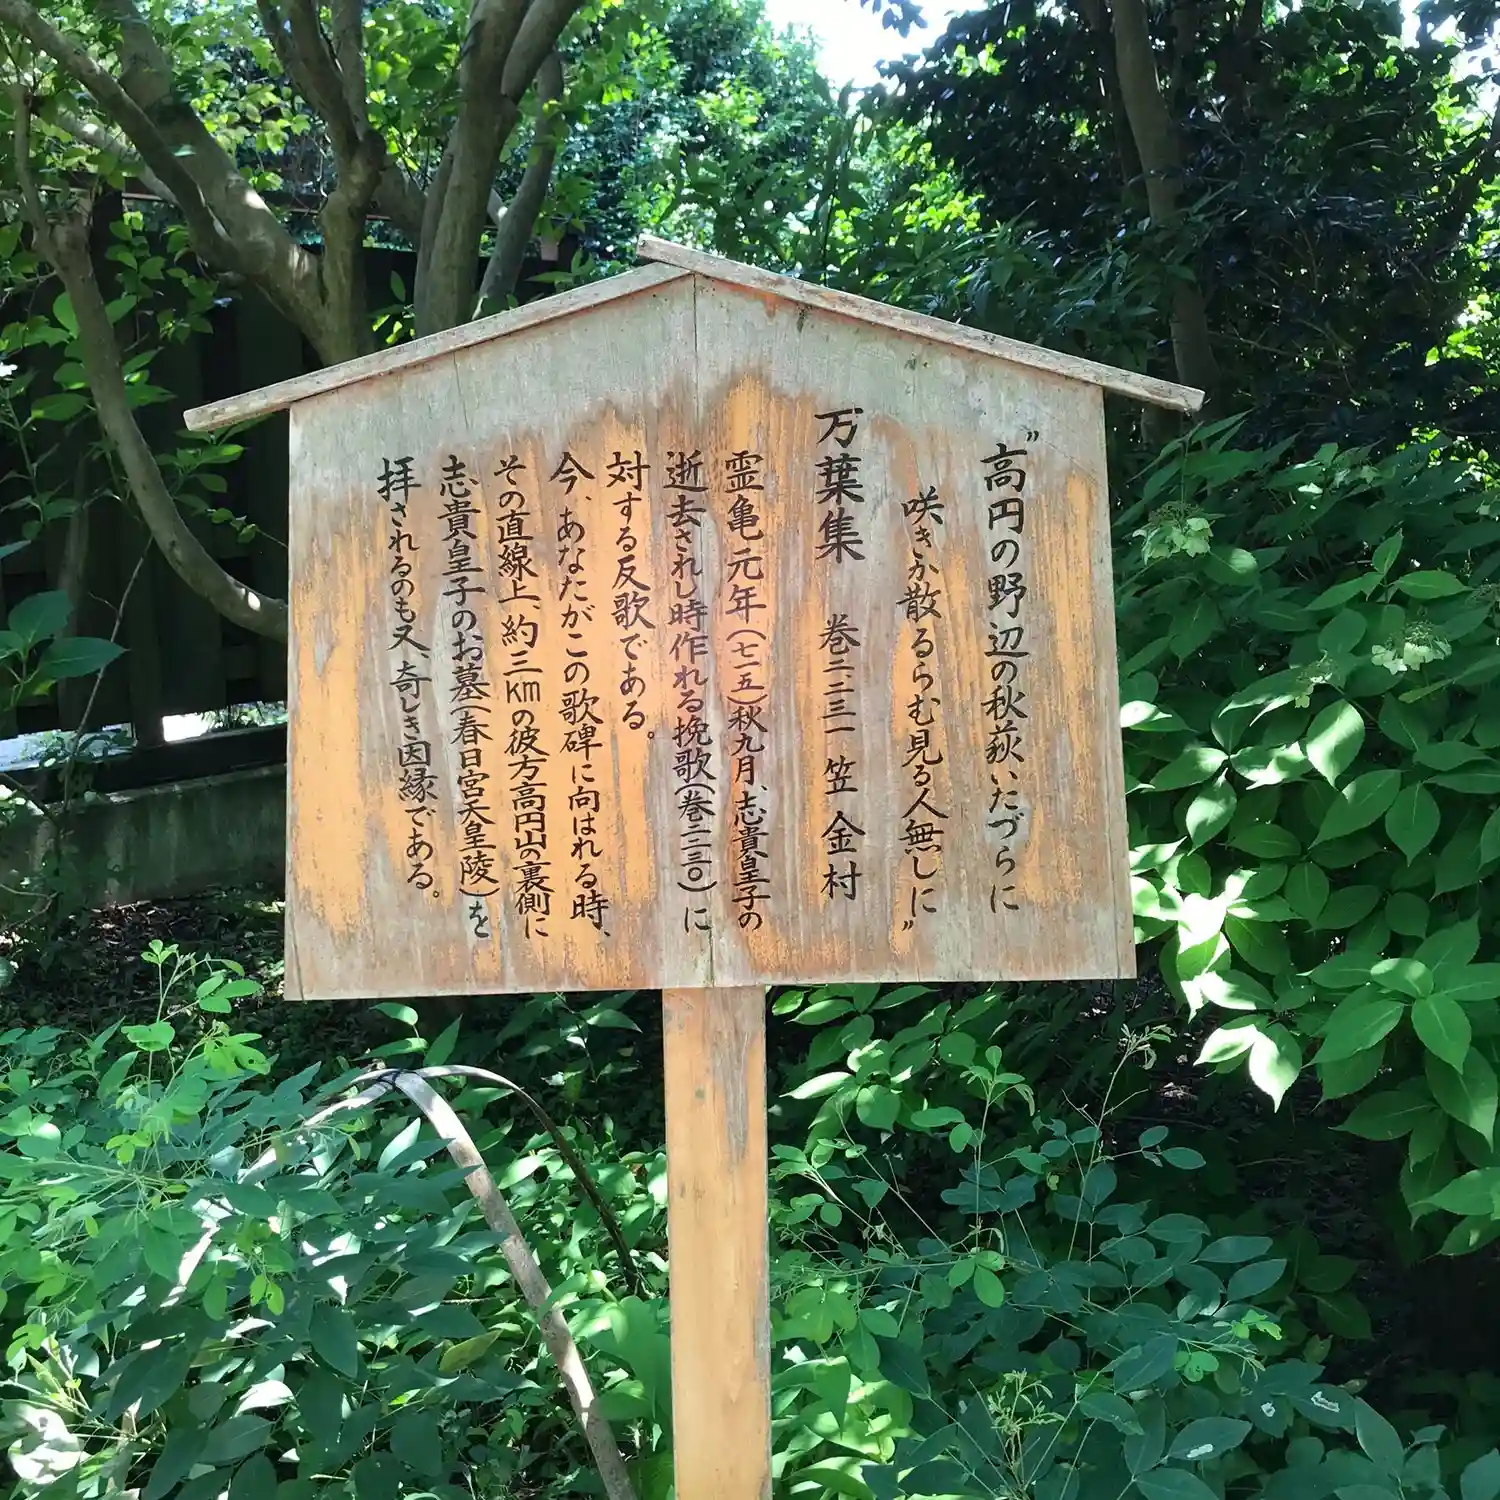 ”高円の野辺の秋萩いたづらに
咲きか散るらむ見る人無しに”
万葉集 巻二、二三一 笠 金村
霊亀元年(七一五)秋九月、志貴皇子の
逝去されし時作れる挽歌(巻二二三〇)に
対する反歌である。
今、あなたがこの歌碑に向はれる時、
その直線上、約三kmの彼方高円山の裏側に
志貴皇子のお墓(春日宮天皇陵)を
拝されるのも又、奇しき因縁である。